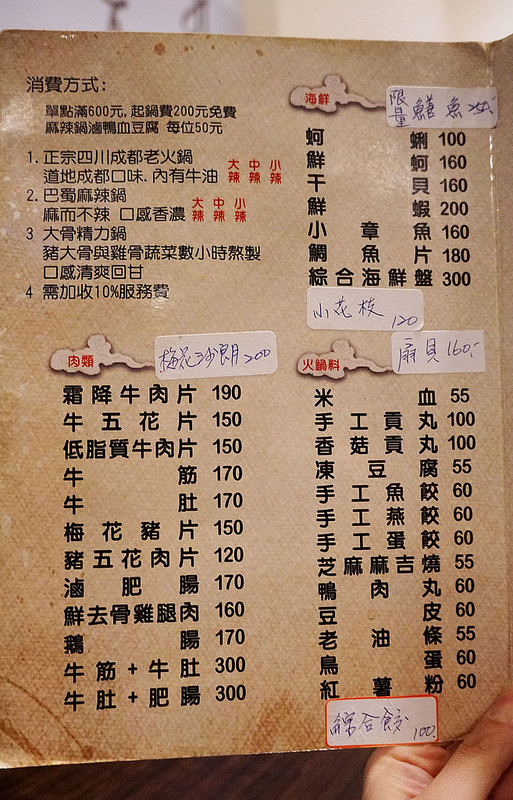 消費方式:
單點滿600元,起鍋費200元免費
麻辣鍋滷鴨血豆腐 每位50元
1.正宗四川成都老火鍋
道地成都口味,內有牛油 大辣 中辣 小辣
2.巴蜀麻辣鍋
麻而不辣 口感香濃 大辣 中辣 小辣
3 大骨精力鍋
豬大骨與雞骨蔬菜數小時熬製
口感清爽回甘
4 需加收10%服務費
肉類
梅花沙朗 200
霜降牛肉片 190
牛五花片 150
低脂質牛肉片 150
牛筋 170
牛肚 170
梅花豬片 150
豬五花肉片 120
滷肥腸 170
鮮去骨雞腿肉 160
鵝腸 170
牛筋+牛肚 300
牛肚+肥腸 300
海鮮
限量 鱔魚 250
蚵蜊 100
鮮蚵 160
干貝 160
鮮蝦 200
小章魚 160
鯛魚片 180
綜合海鮮盤 300
小花枝 120
扇貝 160.
火鍋料
米血 55
手工貢丸 100
香菇貢丸 100
凍豆腐 55
手工魚餃 60
手工燕餃 60
手工蛋餃 60
芝麻麻吉燒 55
鴨肉丸 60
豆皮 60
老油條 55
鳥蛋 60
紅薯粉 60
綜合餃 100.